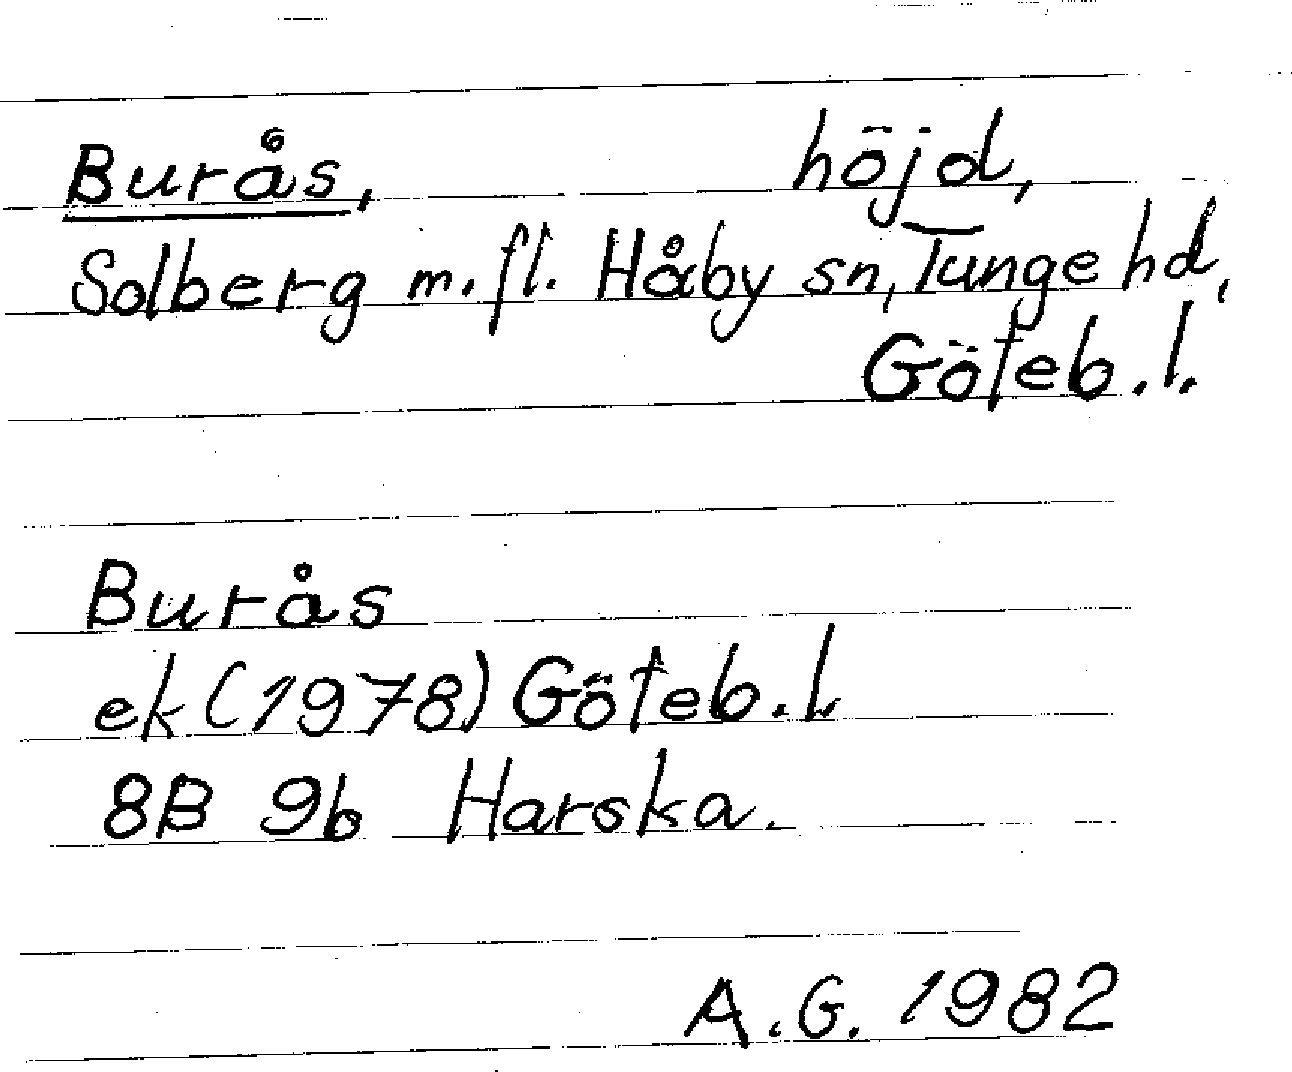 Burås, höjd,
Solberg m.fl. Håby sn, Tunge hd,
Göteb.l.
Burås
ek (1978) Göteb.l.
8B 9b Harska.
A.G. 1982